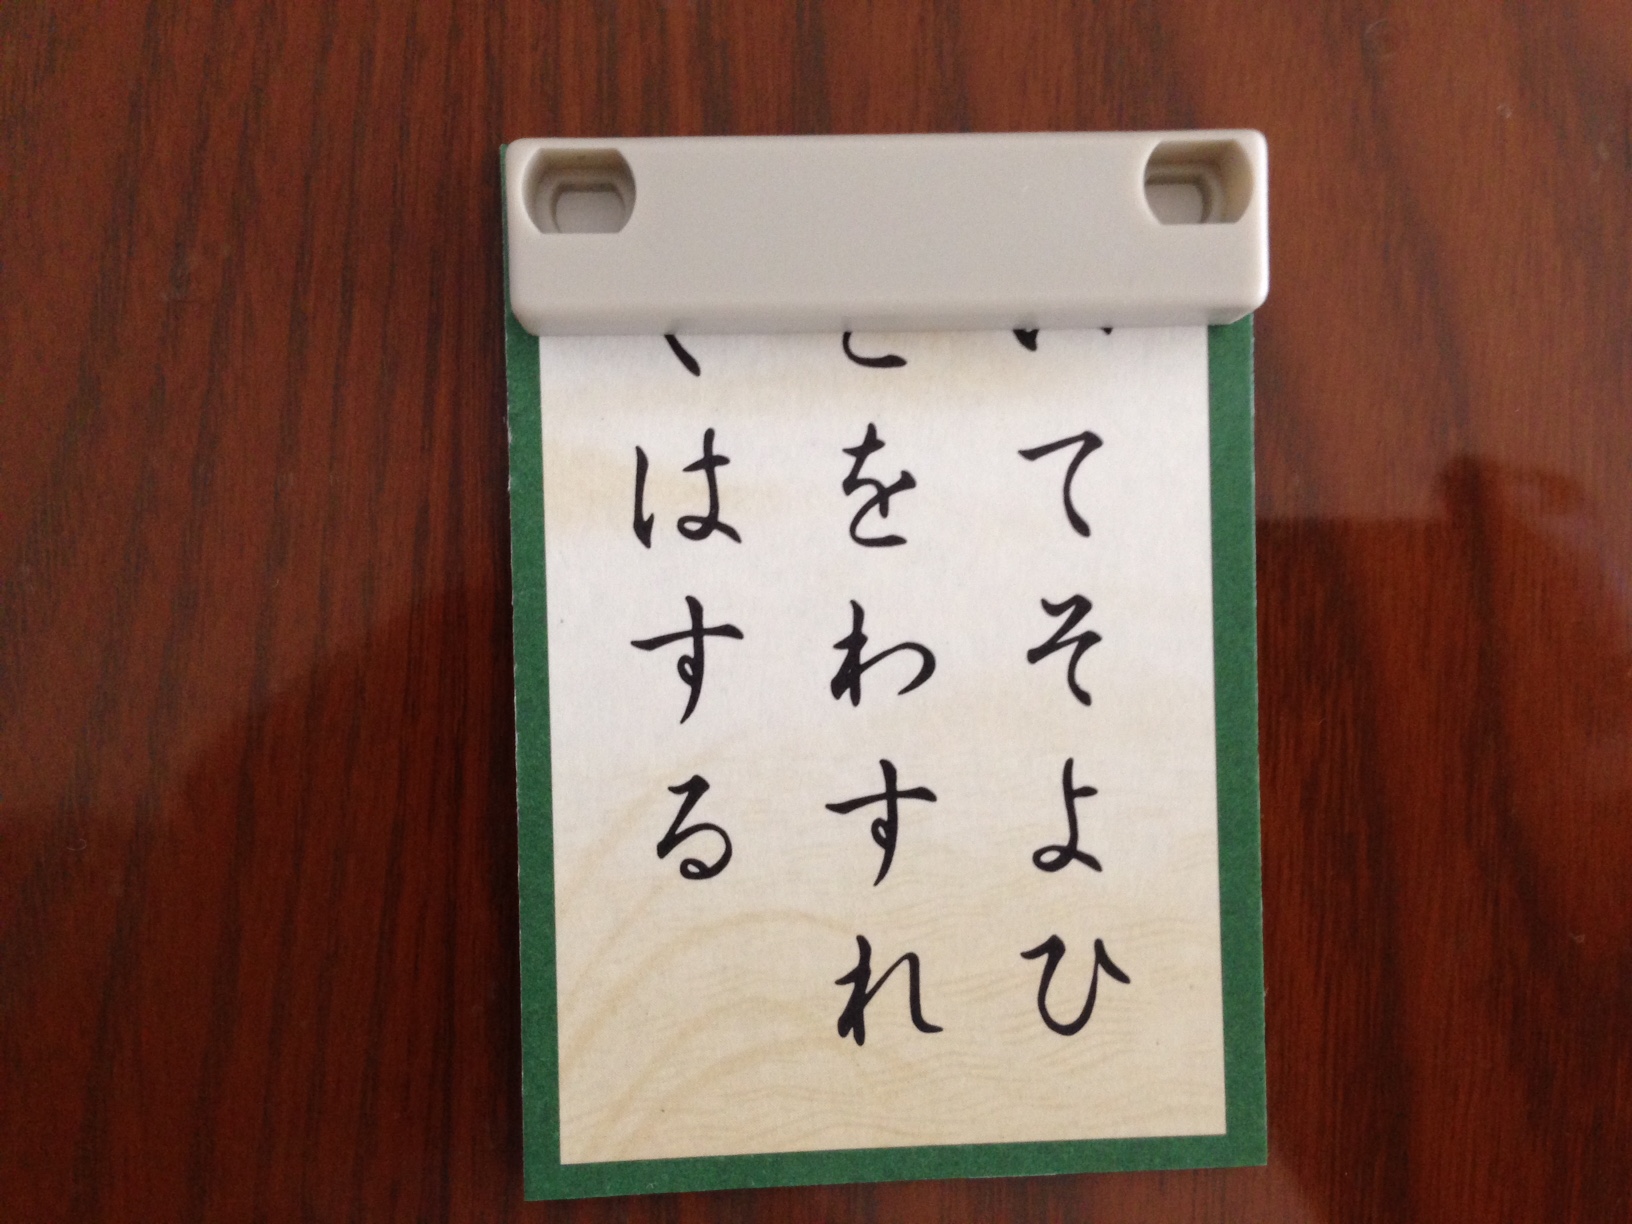 てそよひ
をわすれ
はする